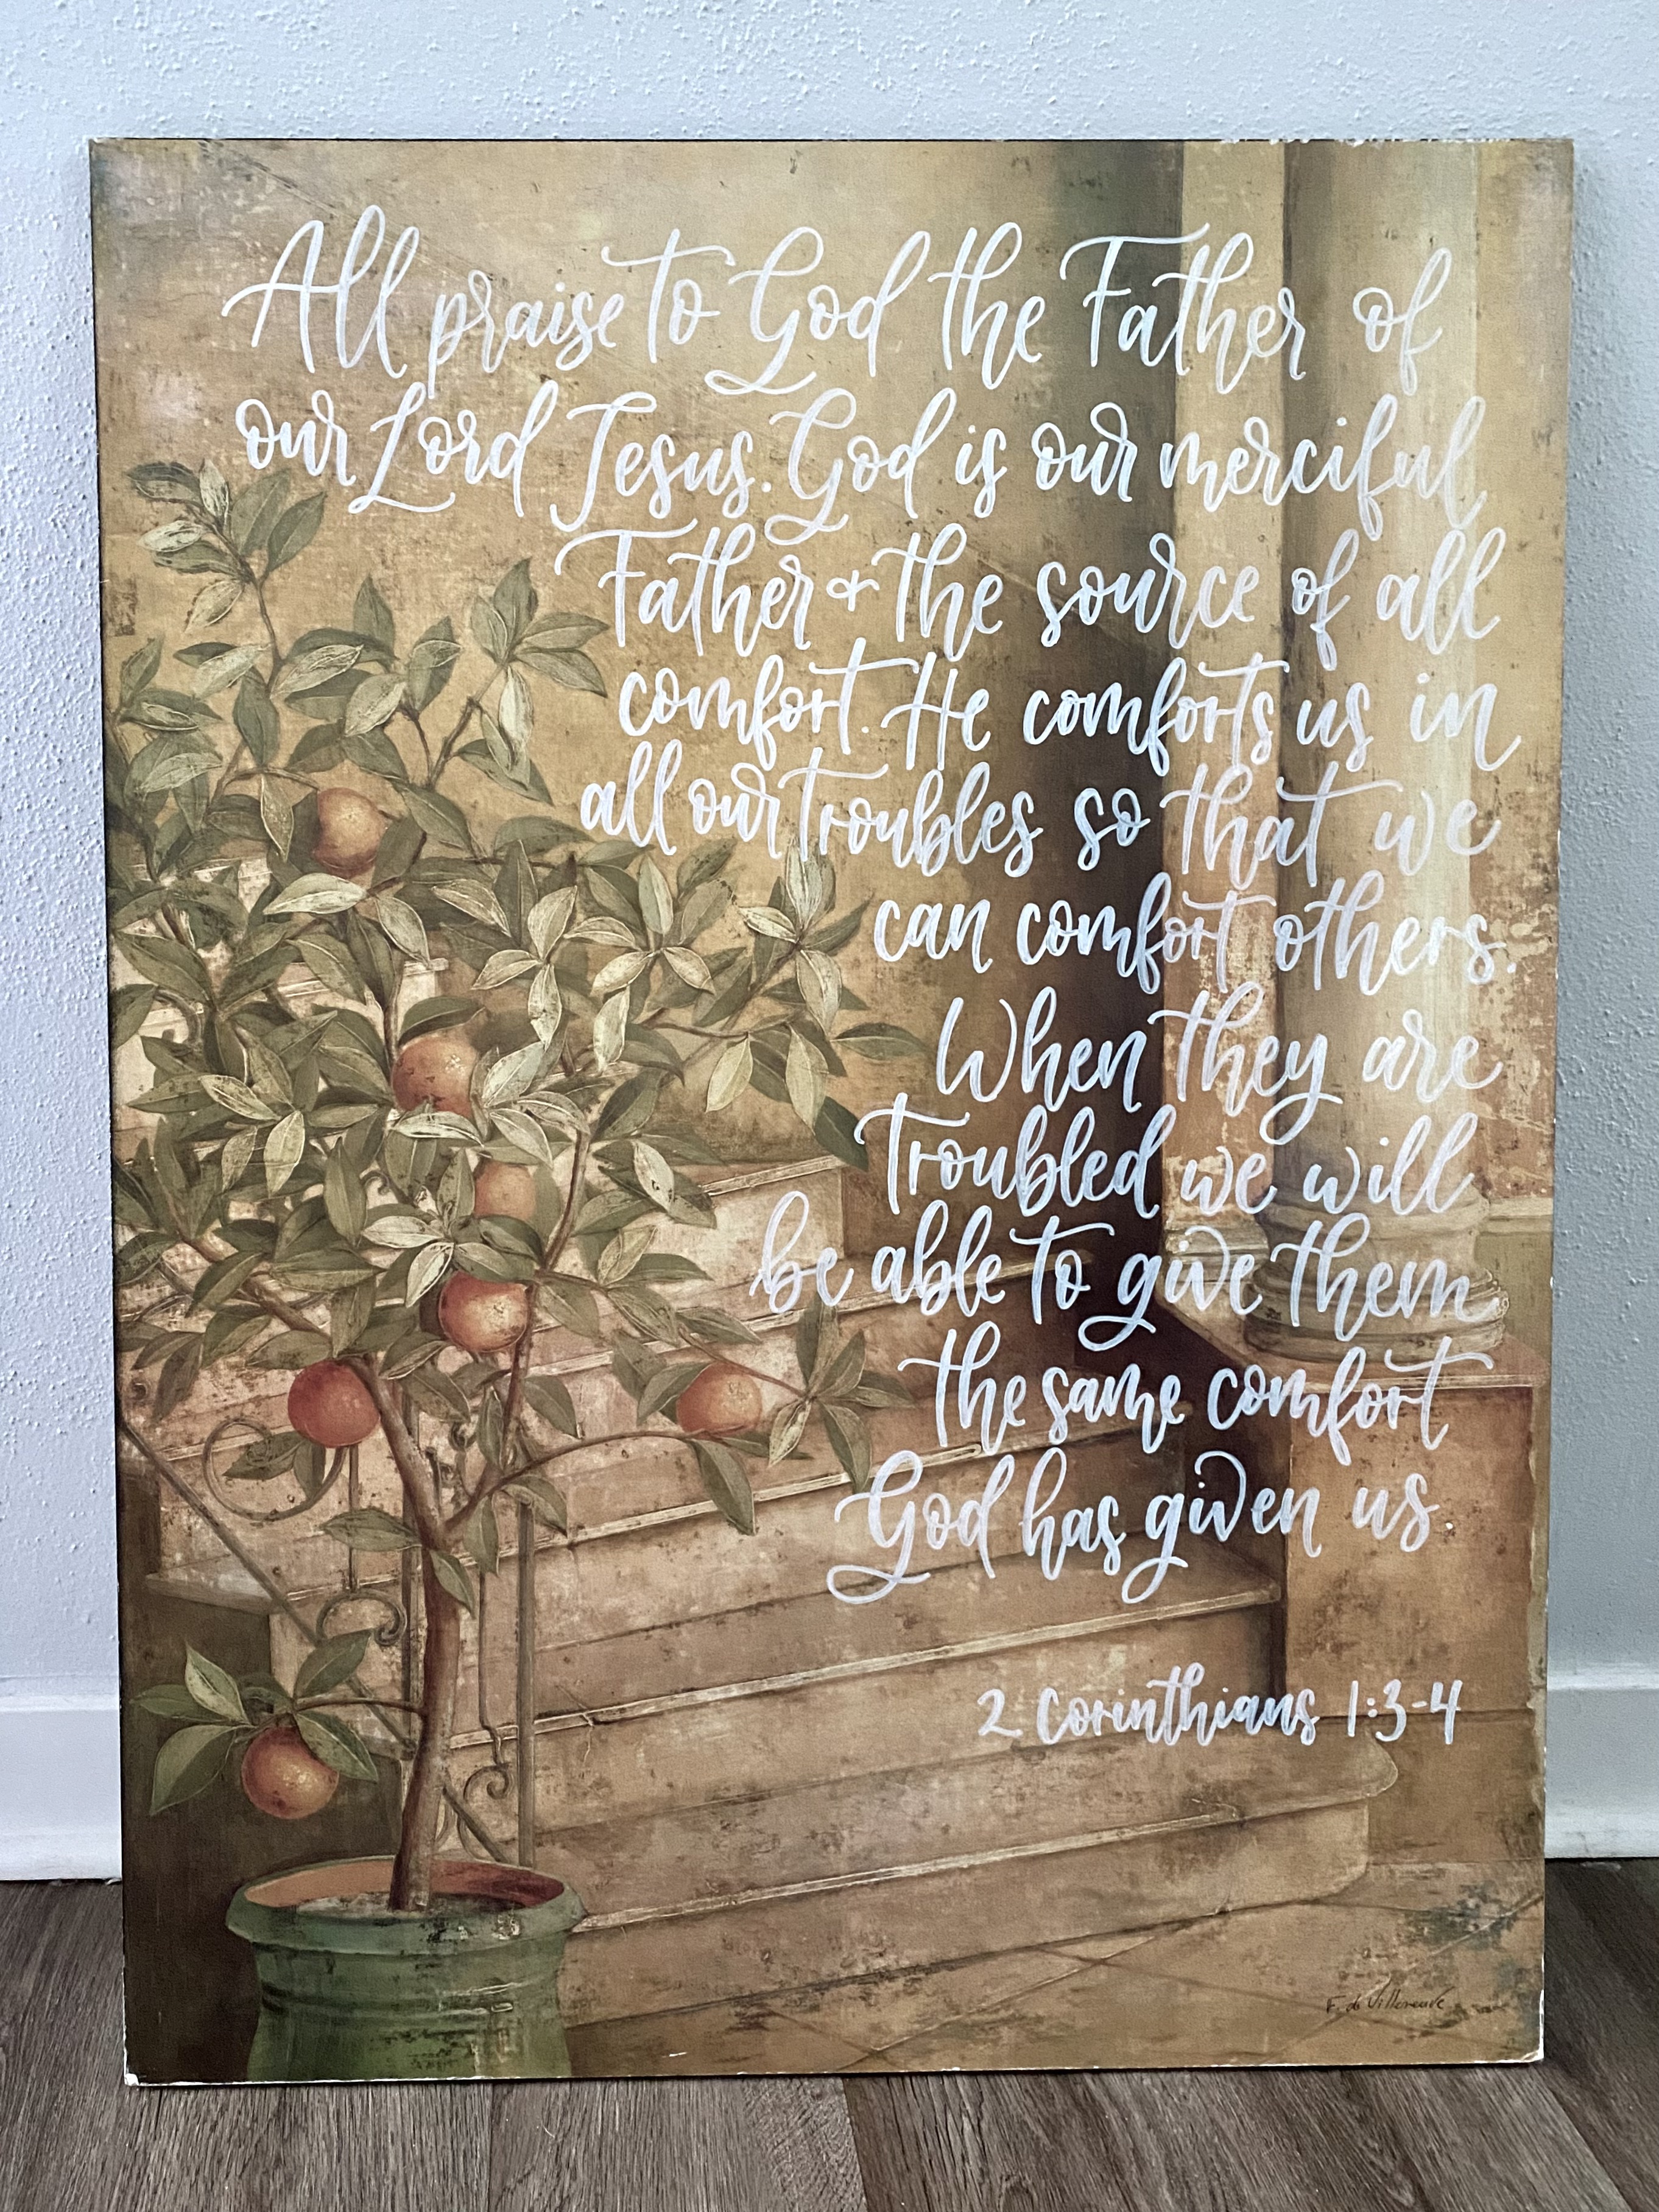 All praise to God the Father of
our Lord Jesus. God is our merciful
Father + the source of all
comfort. He comforts us in
all our troubles so that we
can comfort others.
When they are
troubled we will
be able to give them
the same comfort
God has given us
2 Corinthians 1:3-4
F. de Villeneuve